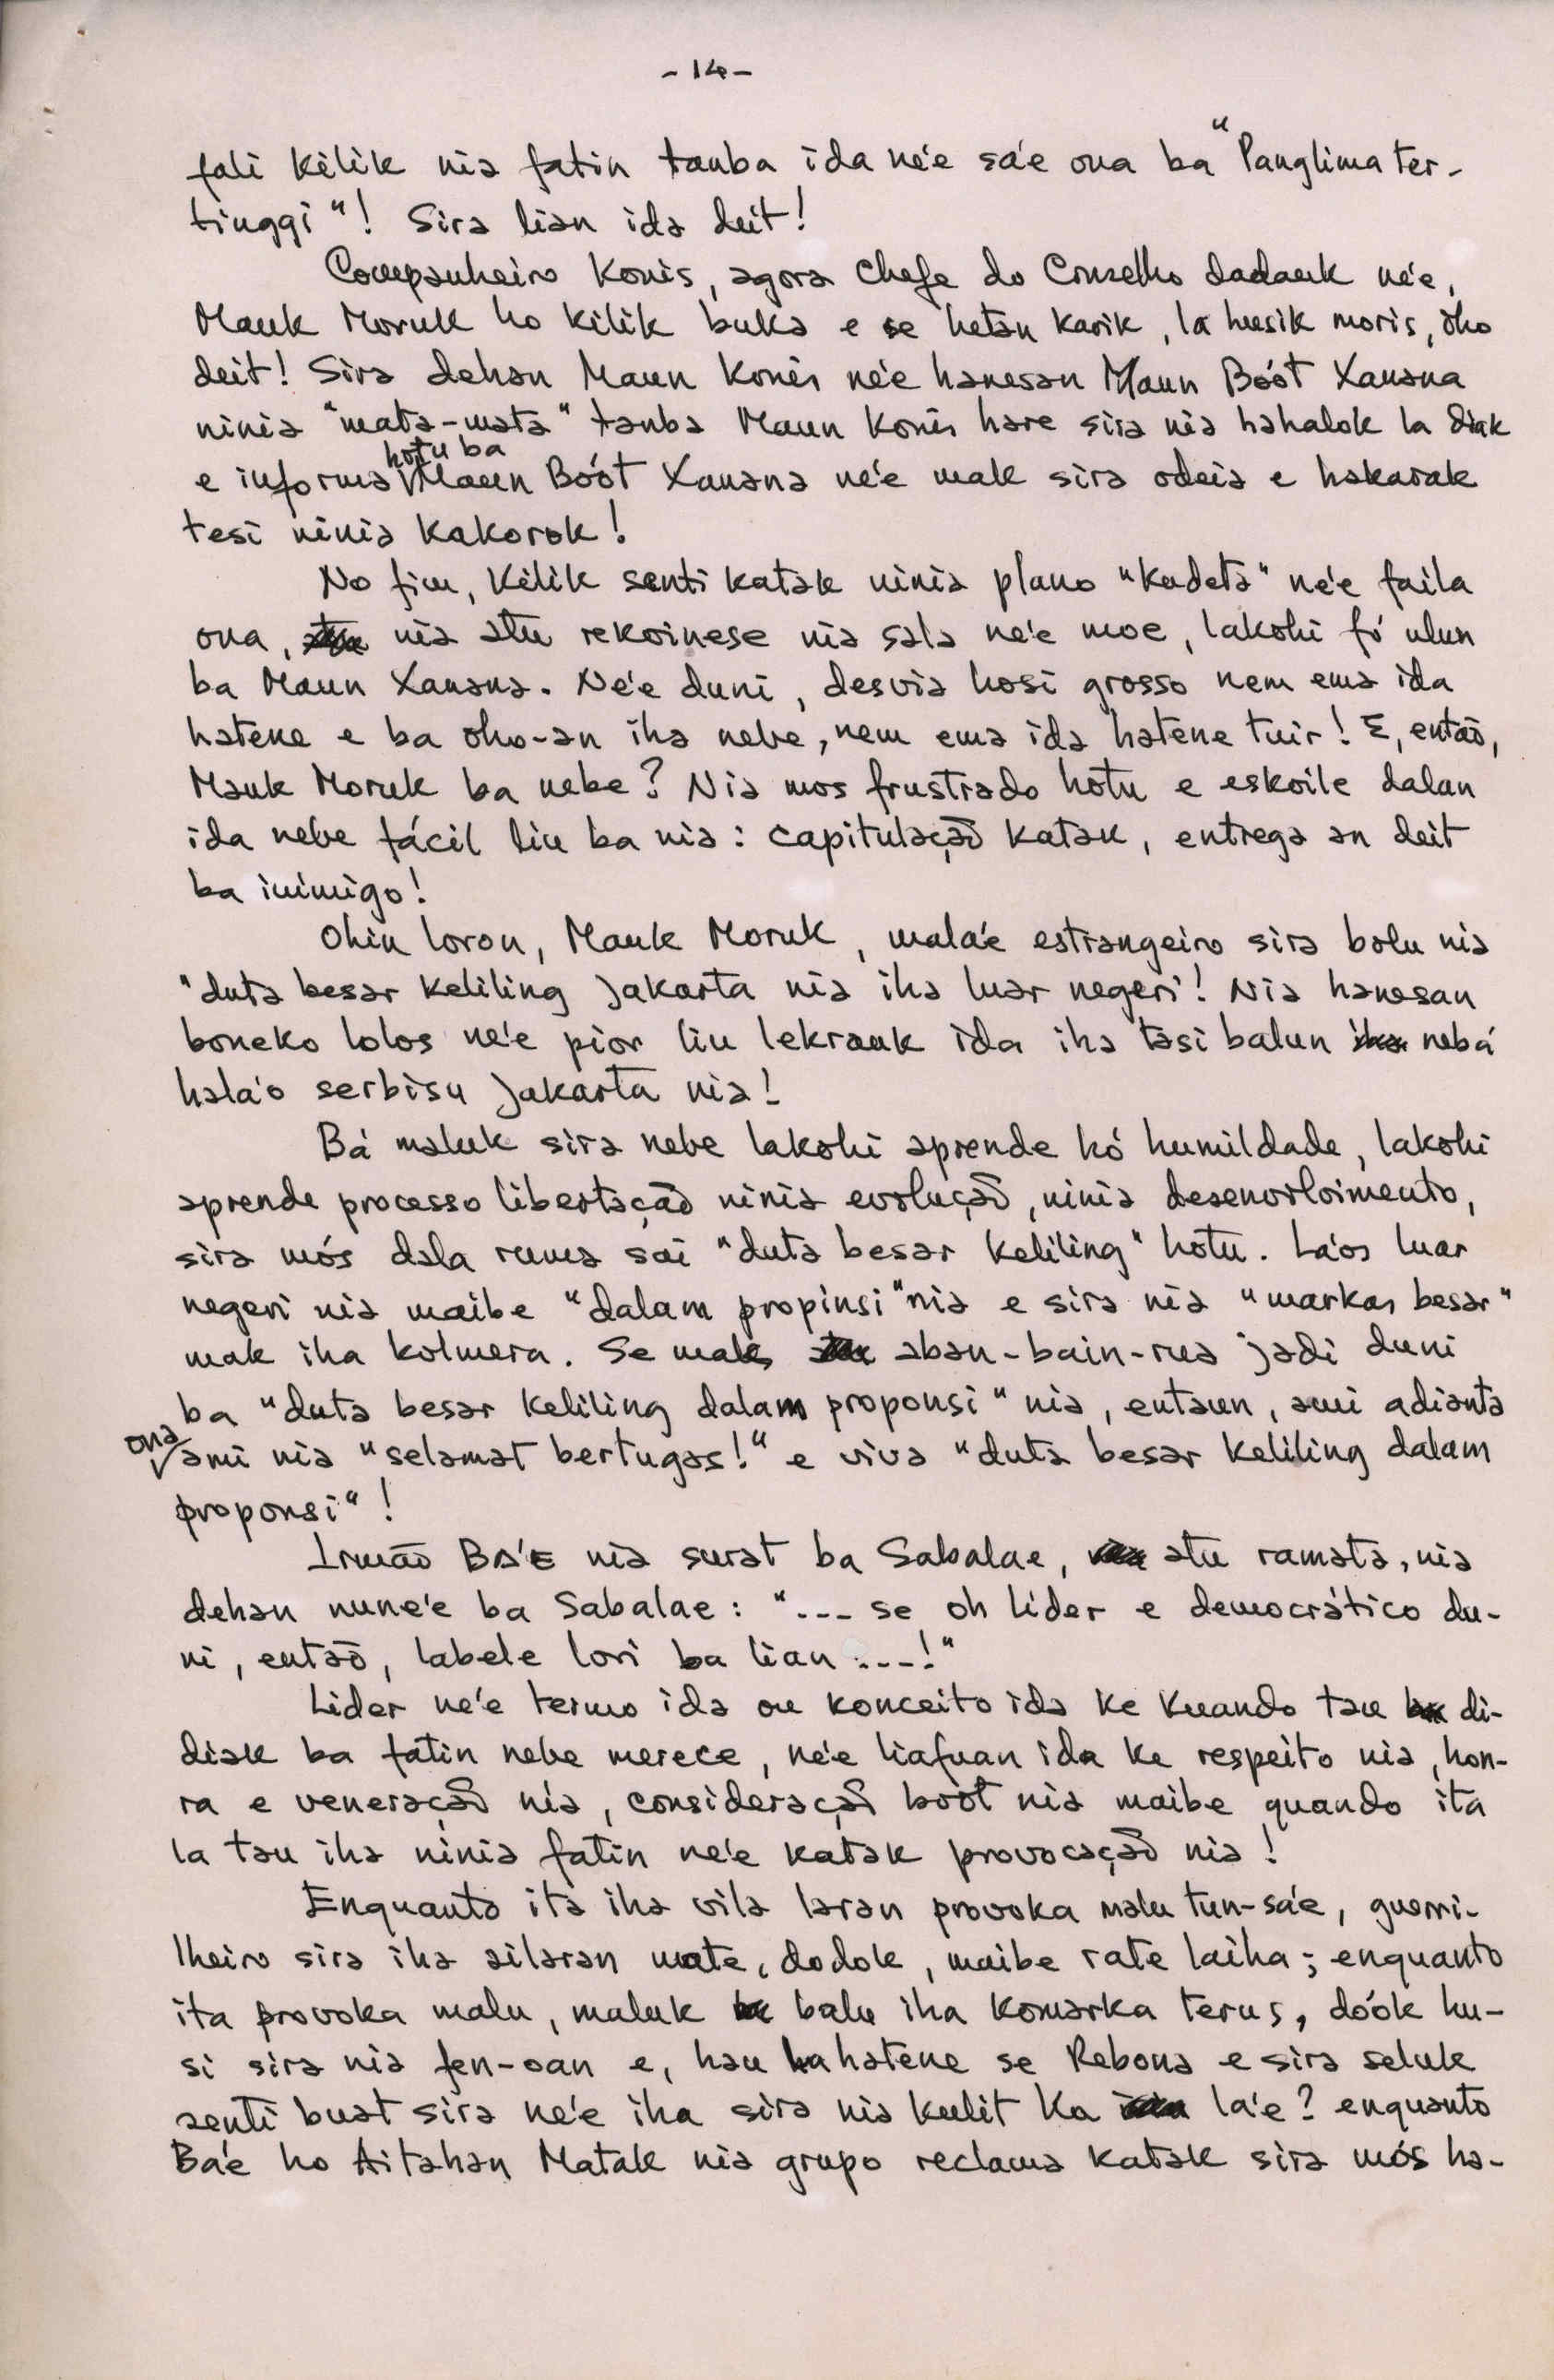 -14-
fali Kilik nia fatin tanba ida né'e sá'e ona ba "Panglima ter-
tinggi"! Sira lian ida deit!
Companheiro Konis, agora Chefe do Conselho dadauk né'e,
Mauk Moruk ho Kilik buka e se hetan karik, la husik moris, oho
deit! Sira dehan Maun Konis né'e hanesan Maun Bóot Xanana
ninia "mata-mata" tanba Maun Konis hare sira nia hahalok la diak
e informa hotu ba Maun Bóot Xanana né'e mak sira odeia e hakarak
tesi ninia kakorok!
No fim, Kilik senti katak ninia plano "kudeta" né'e faila
ona, nia atu rekoinese nia sala né'e moe, lakohi fó ulun
ba Maun Xanana. Né'e duni, desvia hosi grosso nem ema ida
hatene e ba oho-an iha nebe, nem ema ida hatene tuir! E, então,
Mauk Moruk ba nebe? Nia mos frustrado hotu e eskoile dalan
ida nebe fácil liu ba nia: capitulação katak, entrega an deit
ba inimigo!
Ohin loron, Mauk Moruk, mala'e estrangeiro sira bolu nia
"duta besar keliling Jakarta nia iha luar negeri"! Nia hanesan
boneko lolos né'e pior liu lekrauk ida iha tasi balun nebá
hala'o serbisu Jakarta nia!
Bá maluk sira nebe lakohi aprende hó humildade, lakohi
aprende processo libertação ninia evolução, ninia desenvolvimento,
sira mós dala ruma sai "duta besar keliling" hotu. La'os luar
negeri nia maibe "dalam propinsi" nia e sira nia "markas besar"
mak iha kolmera. Se mak aban-bain-rua jadi duni
ba "duta besar keliling dalam proponsi" nia, entaun, ami adianta
ona ami nia "selamat bertugas!" e viva "duta besar keliling dalam
proponsi"!
Irmão BÁ'E nia surat ba Sabalae, atu ramata, nia
dehan nune'e ba Sabalae: "... se oh líder e democrático du-
ni, então, labele lori ba lian ...!"
Lider né'e termo ida ou konceito ida ke kuando tau di-
diak ba fatin nebe merece, né'e liafuan ida ke respeito nia, hon-
ra e veneração nia, consideração boót nia maibe quando ita
la tau iha ninia fatin né'e katak provocação nia!
Enquanto ita iha vila laran provoka malu tun-sá'e, guerri-
lheiro sira iha ailaran mate, dodok, maibe rate laiha; enquanto
ita provoka malu, maluk balu iha Komarka terus, dóok hu-
si sira nia fen-oan e, hau la hatene se Rebona e sira seluk
senti buat sira né'e iha sira nia kulit ka la'e? enquanto
Bá'e ho Aitahan Matak nia grupo reclama katak sira mós ha-